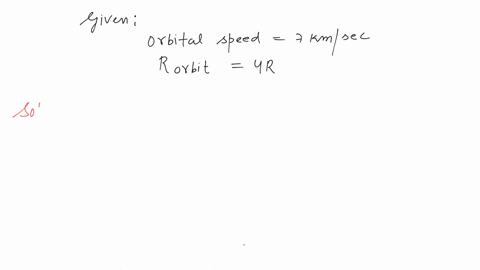 Given:
orbital speed = 7 km/sec
R orbit = 4R
So'